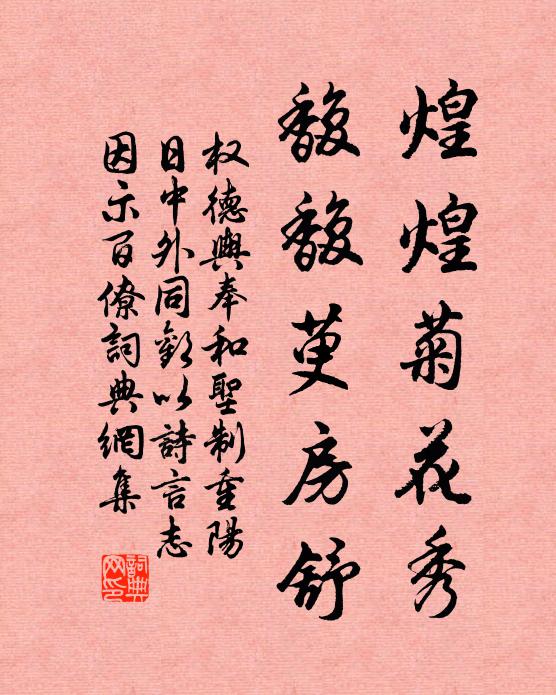 煌煌菊花秀
馥馥萸房舒
权德輿奉和聖制重陽
日中外同歡以詩言志
因示百僚詞典網集
詞典网印